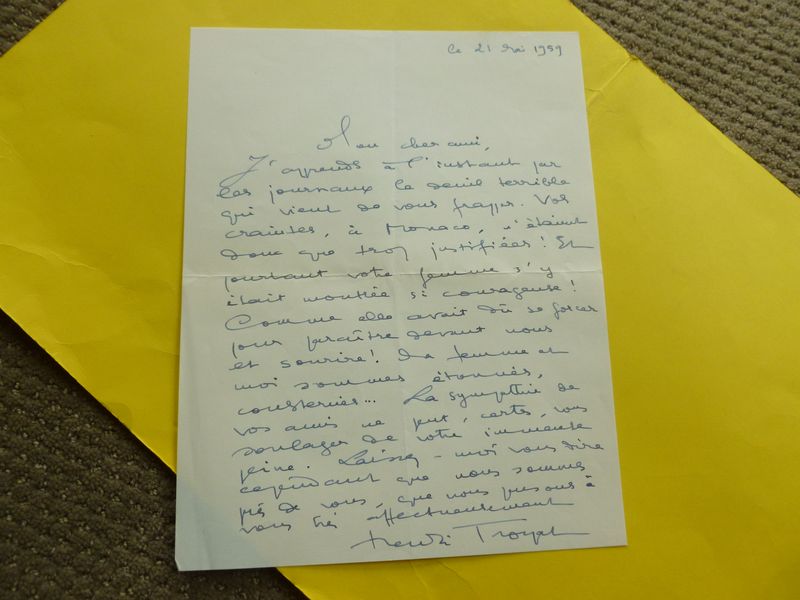 Le 21 Mai 1959
Mon cher ami,
J'apprends à l'instant par
les journaux le deuil terrible
qui vient de vous frapper. Vos
craintes, à Monaco, n'étaient
donc que trop justifiées! Et
pourtant votre femme s'y
était montrée si courageuse!
Comme elle avait dû se forcer
pour paraître devant nous
et sourire! Ma femme et
moi sommes étonnés,
consternés... La sympathie de
vos amis ne peut, certes, vous
soulager de votre immense
peine. Laissez-moi vous dire
cependant que nous sommes
près de vous, que nous pensons à
vous très affectueusement
Henri Troyat